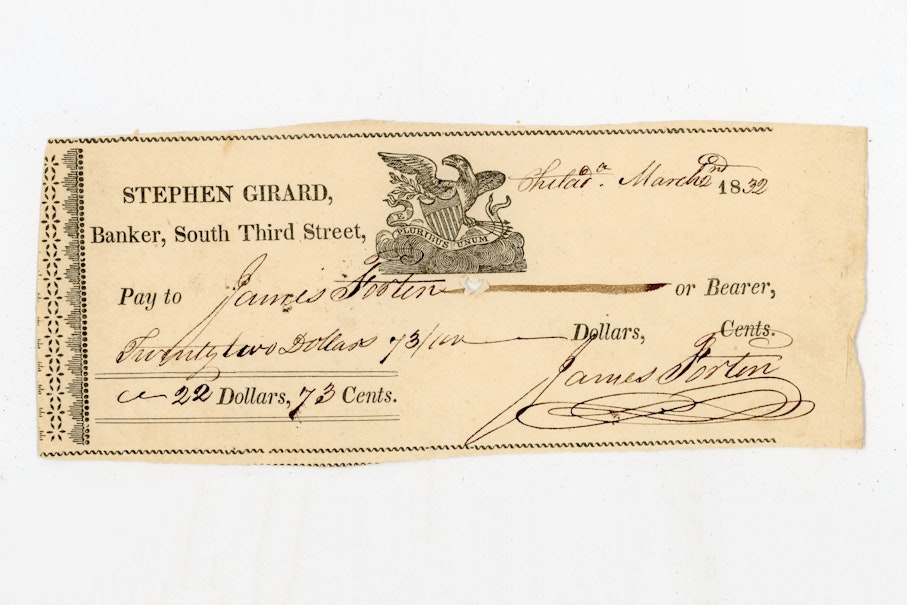 STEPHEN GIRARD,
Banker, South Third Street,
PLURIBUS UNUM
Philada. March 2nd 1832
Pay to James Forten or Bearer,
Twenty two Dollars 73/100 Dollars, Cents.
22 Dollars, 73 Cents.
James Forten